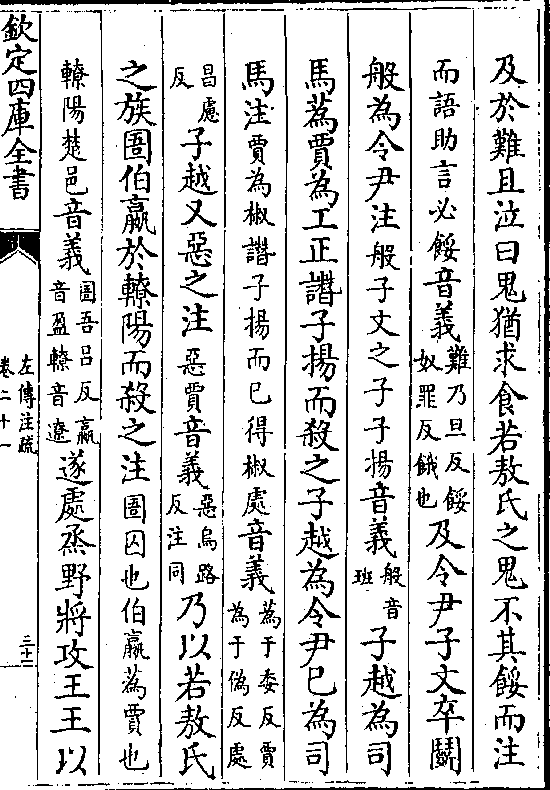 及於難且泣曰鬼猶求食若敖氏之鬼不其餒而注
而語助言必餒音義難乃旦反餒奴罪反餓也及令尹子文卒鬭
般為令尹注般子文之子子揚音義般音班子越為司
馬蔿賈為工正譖子揚而殺之子越為令尹已為司
馬注賈為椒譖子揚而已得椒處音義蔿于委反賈為于偽反處
昌慮反子越又惡之注惡賈音義惡烏路反注同乃以若敖氏
之族圄伯嬴於轑陽而殺之注圄囚也伯嬴蔿賈也
轑陽楚邑音義圄吾呂反嬴音盈轑音遼遂處烝野將攻王王以
欽定四庫全書
左傳注疏
卷二十一
三十二